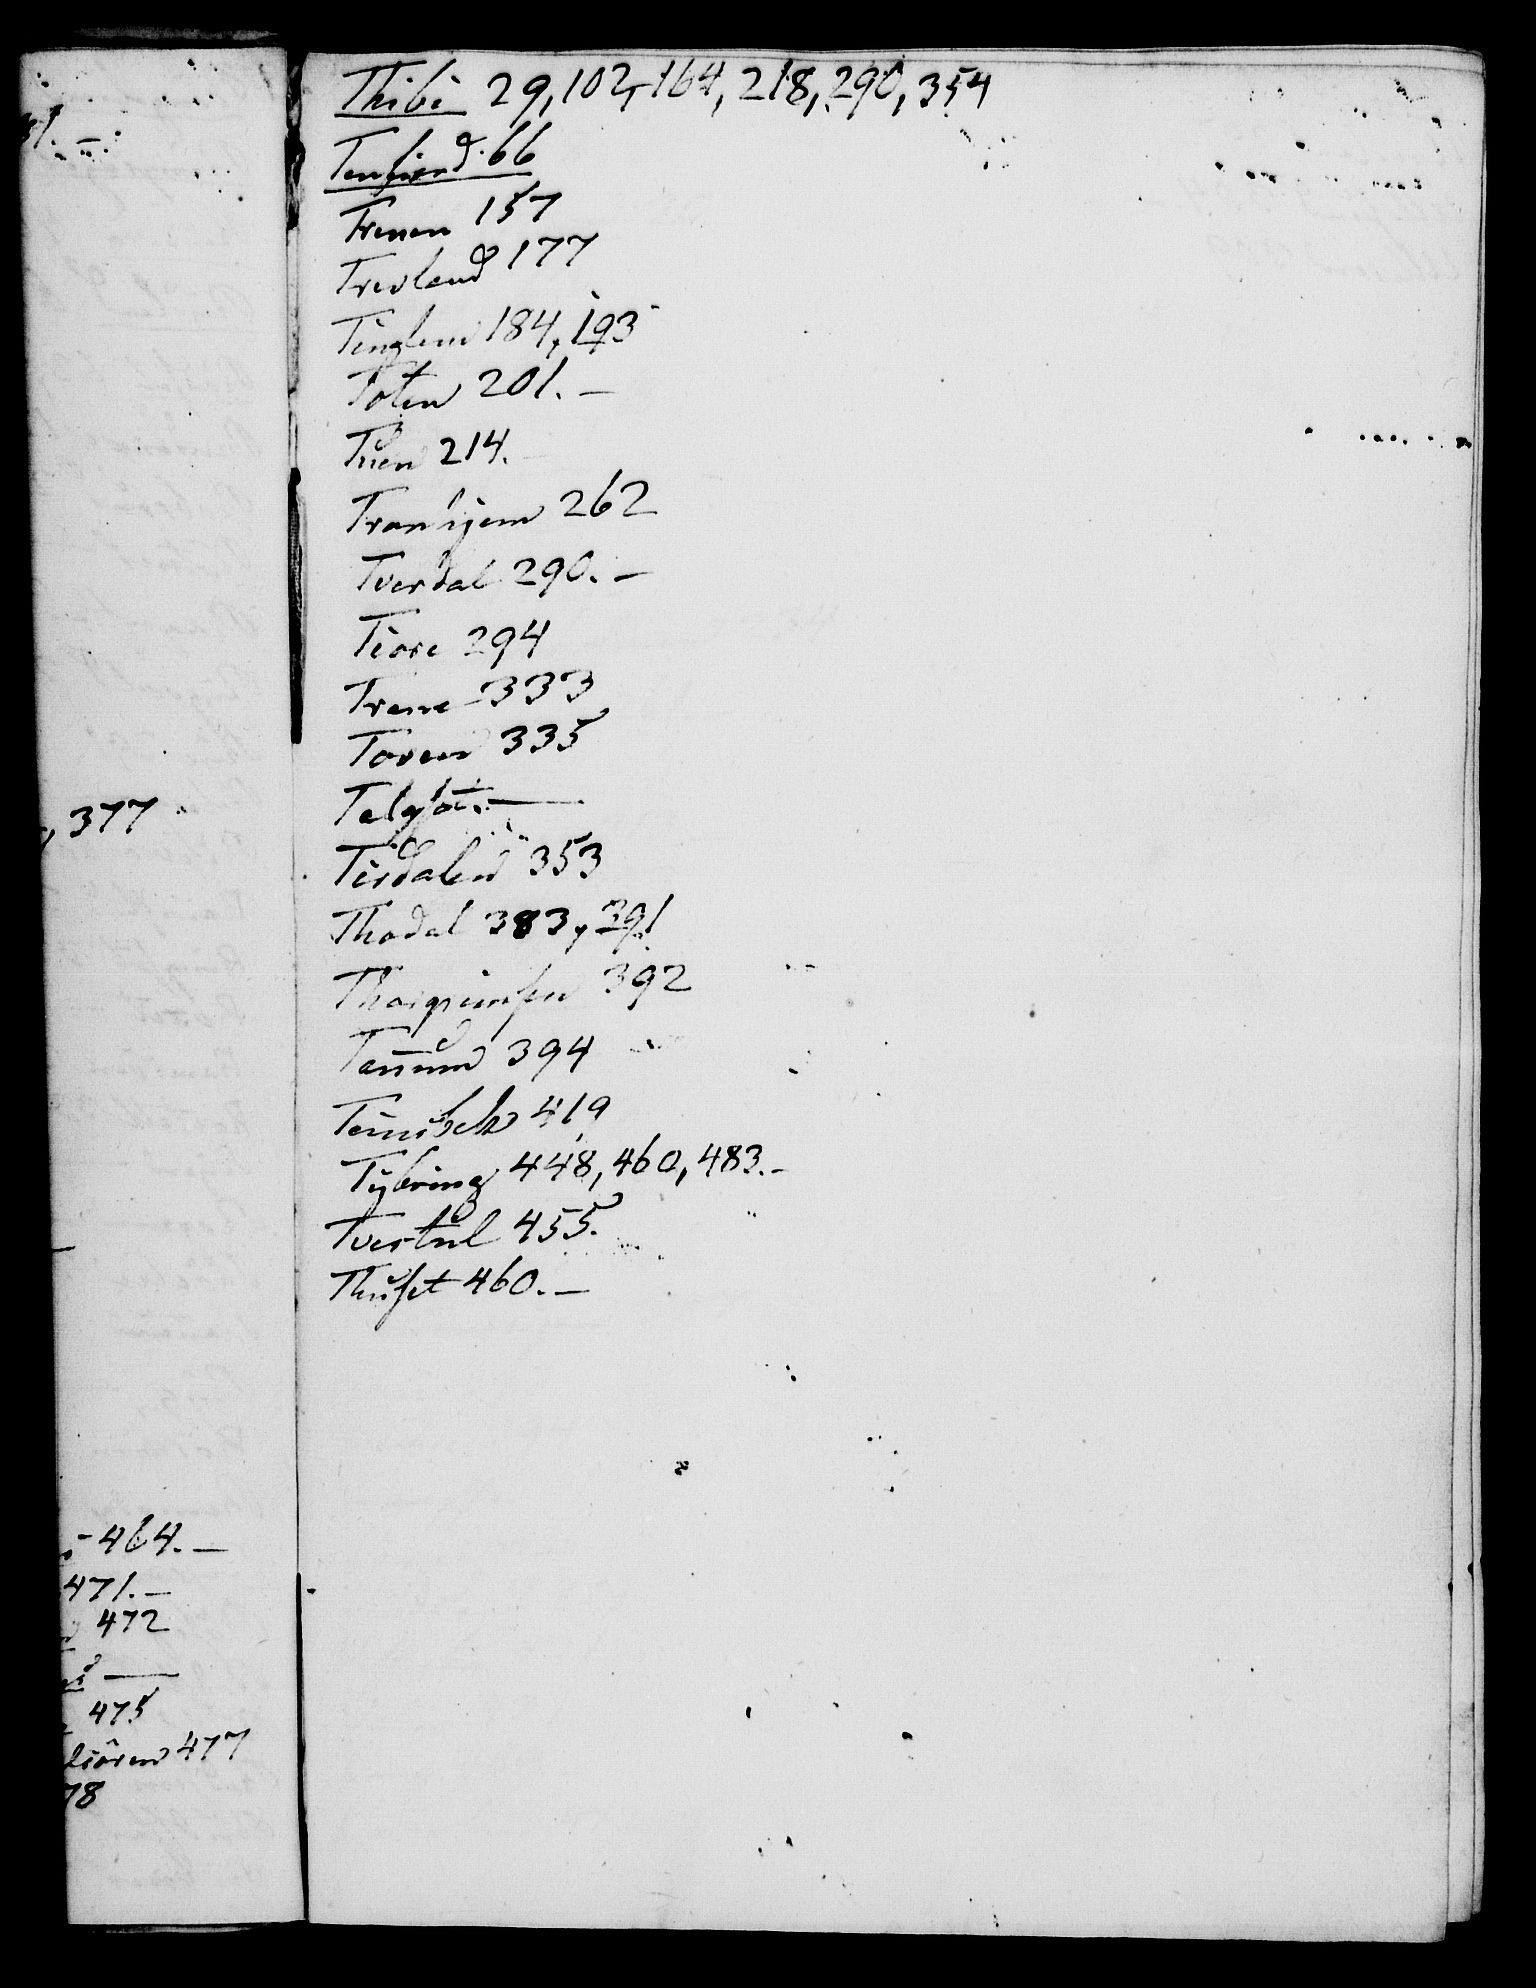 , 377
464. —
471. —
472
475
477
78
Thibe 29, 102, 164, 218, 290, 354
Tenfiord. 66
Trenen 157
Trevland 177
Tinglen 184, 193
Toten 201. —
Tuen 214.
Tranhjem 262
Tverdal 290. —
Tiore 294
Trane 333
Toren 335
Talgsöe. —
Tisdalen 353
Thodal 383, 391
Thorgrimsen 392
Tanum 394
419
Tybring 448, 460, 483. —
Tvertul 455.
Thuset 460. —